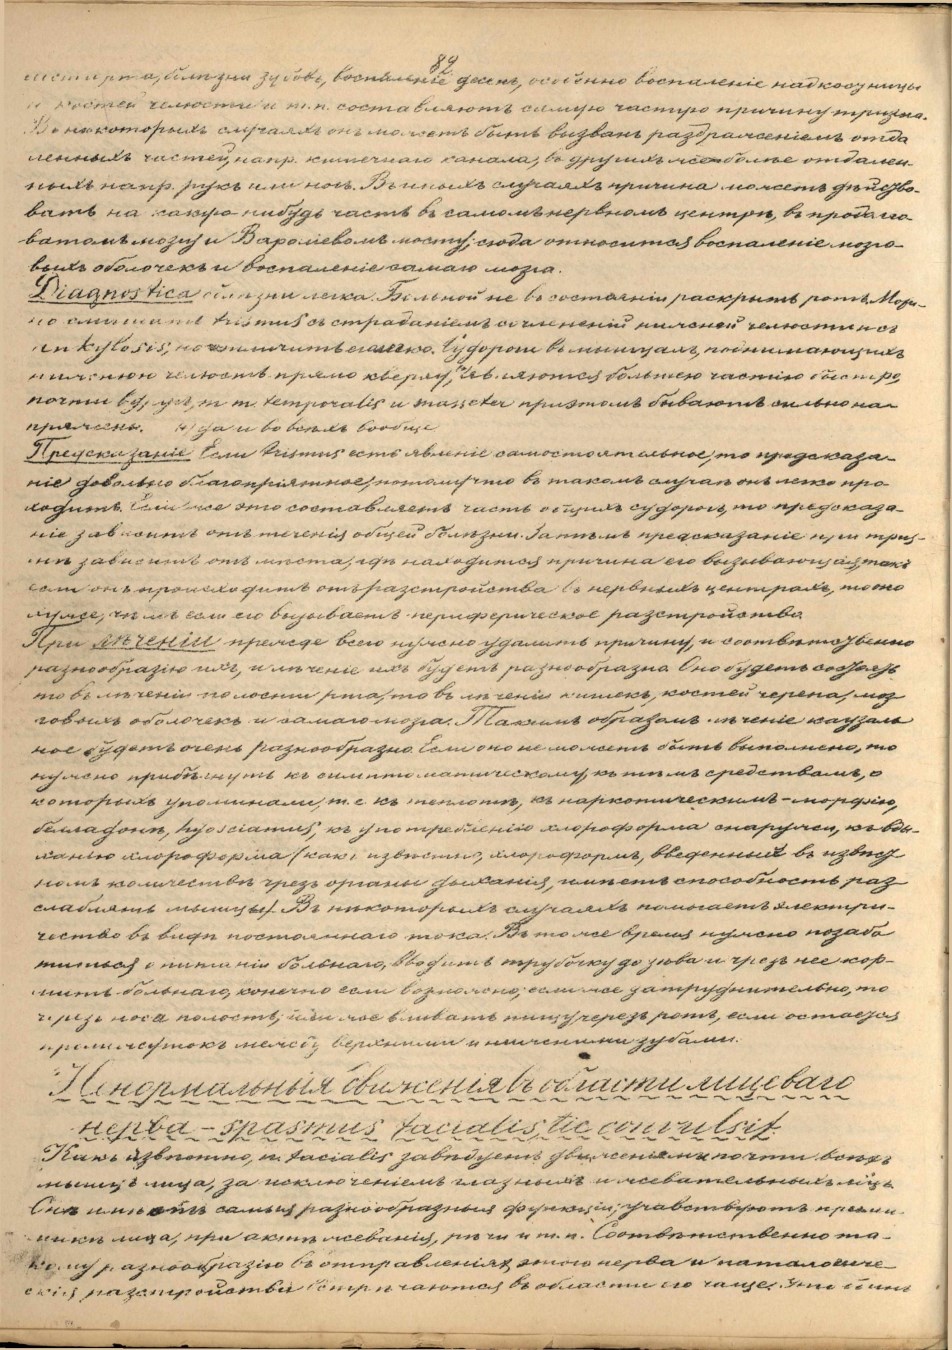 89
рта, болѣзни зубовъ, воспаленіе десенъ, особенно воспаленіе надкосницы
и костей челюсти и т.п. составляютъ самую частую причину тризма.
Въ некоторыхъ случаяхъ онъ можетъ быть вызванъ раздраженіемъ отда
ленныхъ частей, напр. кишечнаго канала, въ другихъ же болѣе отдален-
ныхъ напр. рукъ или ногъ. Въ иныхъ случаяхъ причина можетъ дѣйство-
вать на какую нибудь часть въ самомъ нервномъ центрѣ, въ продолго
ватомъ мозгу и Вароліевомъ мосту; сюда относится воспаленіе мозго-
выхъ оболочекъ и воспаленіе самаго мозга.
Diagnostica болѣзни легка. Больной не въ состояніи раскрыть ротъ. Мож-
но смѣшать trismus съ страданіемъ сочлененій нижней челюсти и съ
ankylosis, но отличить легко. Судороги въ мышцахъ, поднимающихъ
нижнюю челюсть прямо кверху, являются большею частію быстро,
почти вдругъ, m m. temporalis и masseter при этомъ бываютъ сильно на
пряжены. и во всѣхъ вообще
Предсказаніе Если trismus есть явленіе самостоятельное, то предсказа-
ніе довольно благопріятное, потому что въ такомъ случаѣ онъ легко про
ходитъ. Если же это составляетъ часть общихъ судорогъ, то предсказа-
ніе зависитъ отъ теченія общей болѣзни. Затѣмъ предсказаніе при триз-
мѣ зависитъ отъ мѣста, гдѣ находится причина его вызывающая; такъ
если онъ происходитъ отъ разстройства въ нервныхъ центрахъ, то это
хуже, чѣмъ если его вызываетъ периферическое разстройство.
При лѣченіи прежде всего нужно удалить причину, и соотвѣтственно
разнообразію ихъ, и лѣченіе ихъ будетъ разнообразна. Оно будетъ состоять
то въ лѣченіи полости рта, то въ лѣченіи кишекъ, костей черепа, моз
говыхъ оболочекъ и самаго мозга. Такимъ образомъ лѣченіе каузаль
ное будетъ очень разнообразно. Если оно не можетъ быть выполнено, то
нужно прибѣгнуть къ симптоматическому, къ тѣмъ средствамъ, о
которыхъ упоминали, т.е. къ теплотѣ, къ наркотическимъ - морфію,
белладоннѣ, hyosciamus, къ употребленію хлороформа снаружи, къ вды-
ханію хлороформа (какъ извѣстно, хлороформъ, введенный въ извѣст
номъ количествѣ чрезъ органы дыханія, имѣетъ способность раз
слаблять мышцы). Въ некоторыхъ случаяхъ помогаетъ электри-
чество въ видѣ постояннаго тока. Въ то же время нужно позабо
титься о питаніи больнаго, вводить трубочку до зѣва и чрезъ нее кор-
мить больнаго, конечно если возможно; если же затруднительно, то
чрезъ носа полость; или же вливать пищу черезъ ротъ, если остается
промежутокъ между верхними и нижними зубами.
Ненормальныя движенія въ области лицеваго
нерва - spasmus facialis, tic convulsif.
Какъ извѣстно, n. facialis завѣдуетъ движеніями почти всѣхъ
мышцъ лица, за исключеніемъ глазныхъ и жевательныхъ мцъ.
Онъ имѣетъ самыя разнообразныя функціи; участвуютъ при ми-
микѣ лица, при актѣ жеванія, рѣчи и т.п. Соотвѣтственно та-
кому разнообразію въ отправленіяхъ этого нерва и патологиче
скія разстройства встрѣчаются въ области его чаще.